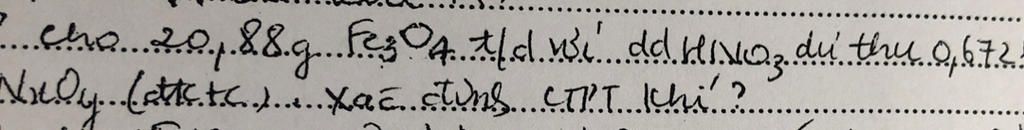 Cho 20,88g Fe3O4 t/d với dd HNO3 dư thu 0,672
NxOy (đktc). Xác định CTPT khí?